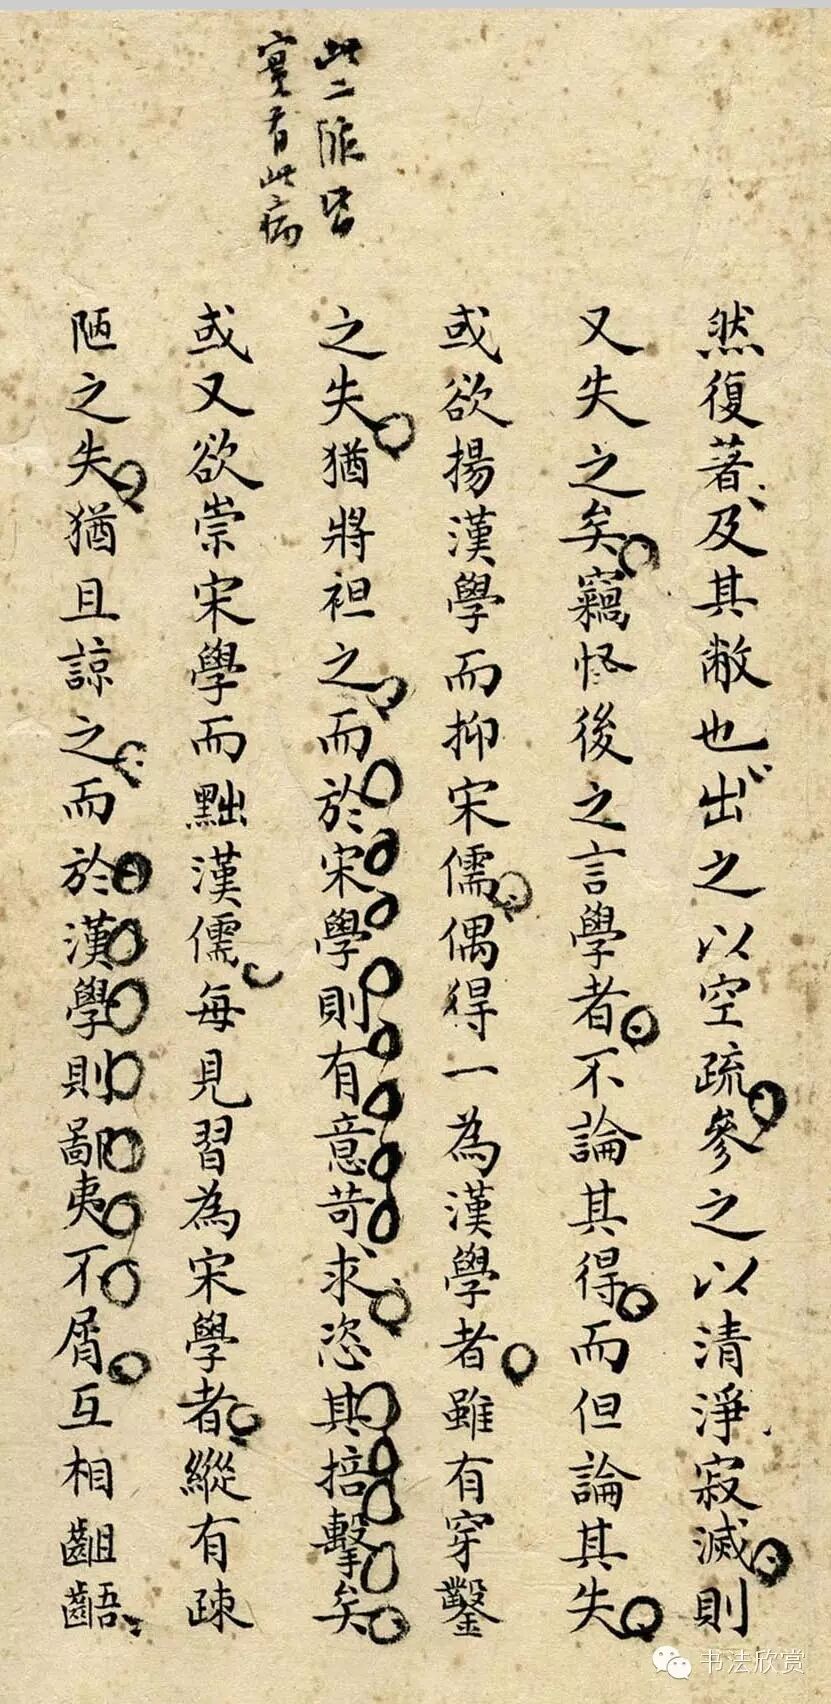 此二弊皆
實有此病
然復著及其敝也出之以空疏參之以清淨寂滅則
又失之矣竊怪後之言學者不論其得而但論其失
或欲揚漢學而抑宋儒偶得一為漢學者雖有穿鑿
之失猶將袒之而於宋學則有意苛求恣其掊擊矣
或又欲崇宋學而黜漢儒每見習為宋學者縱有疎
陋之失猶且諒之而於漢學則鄙夷不屑互相齟齬
书法欣赏